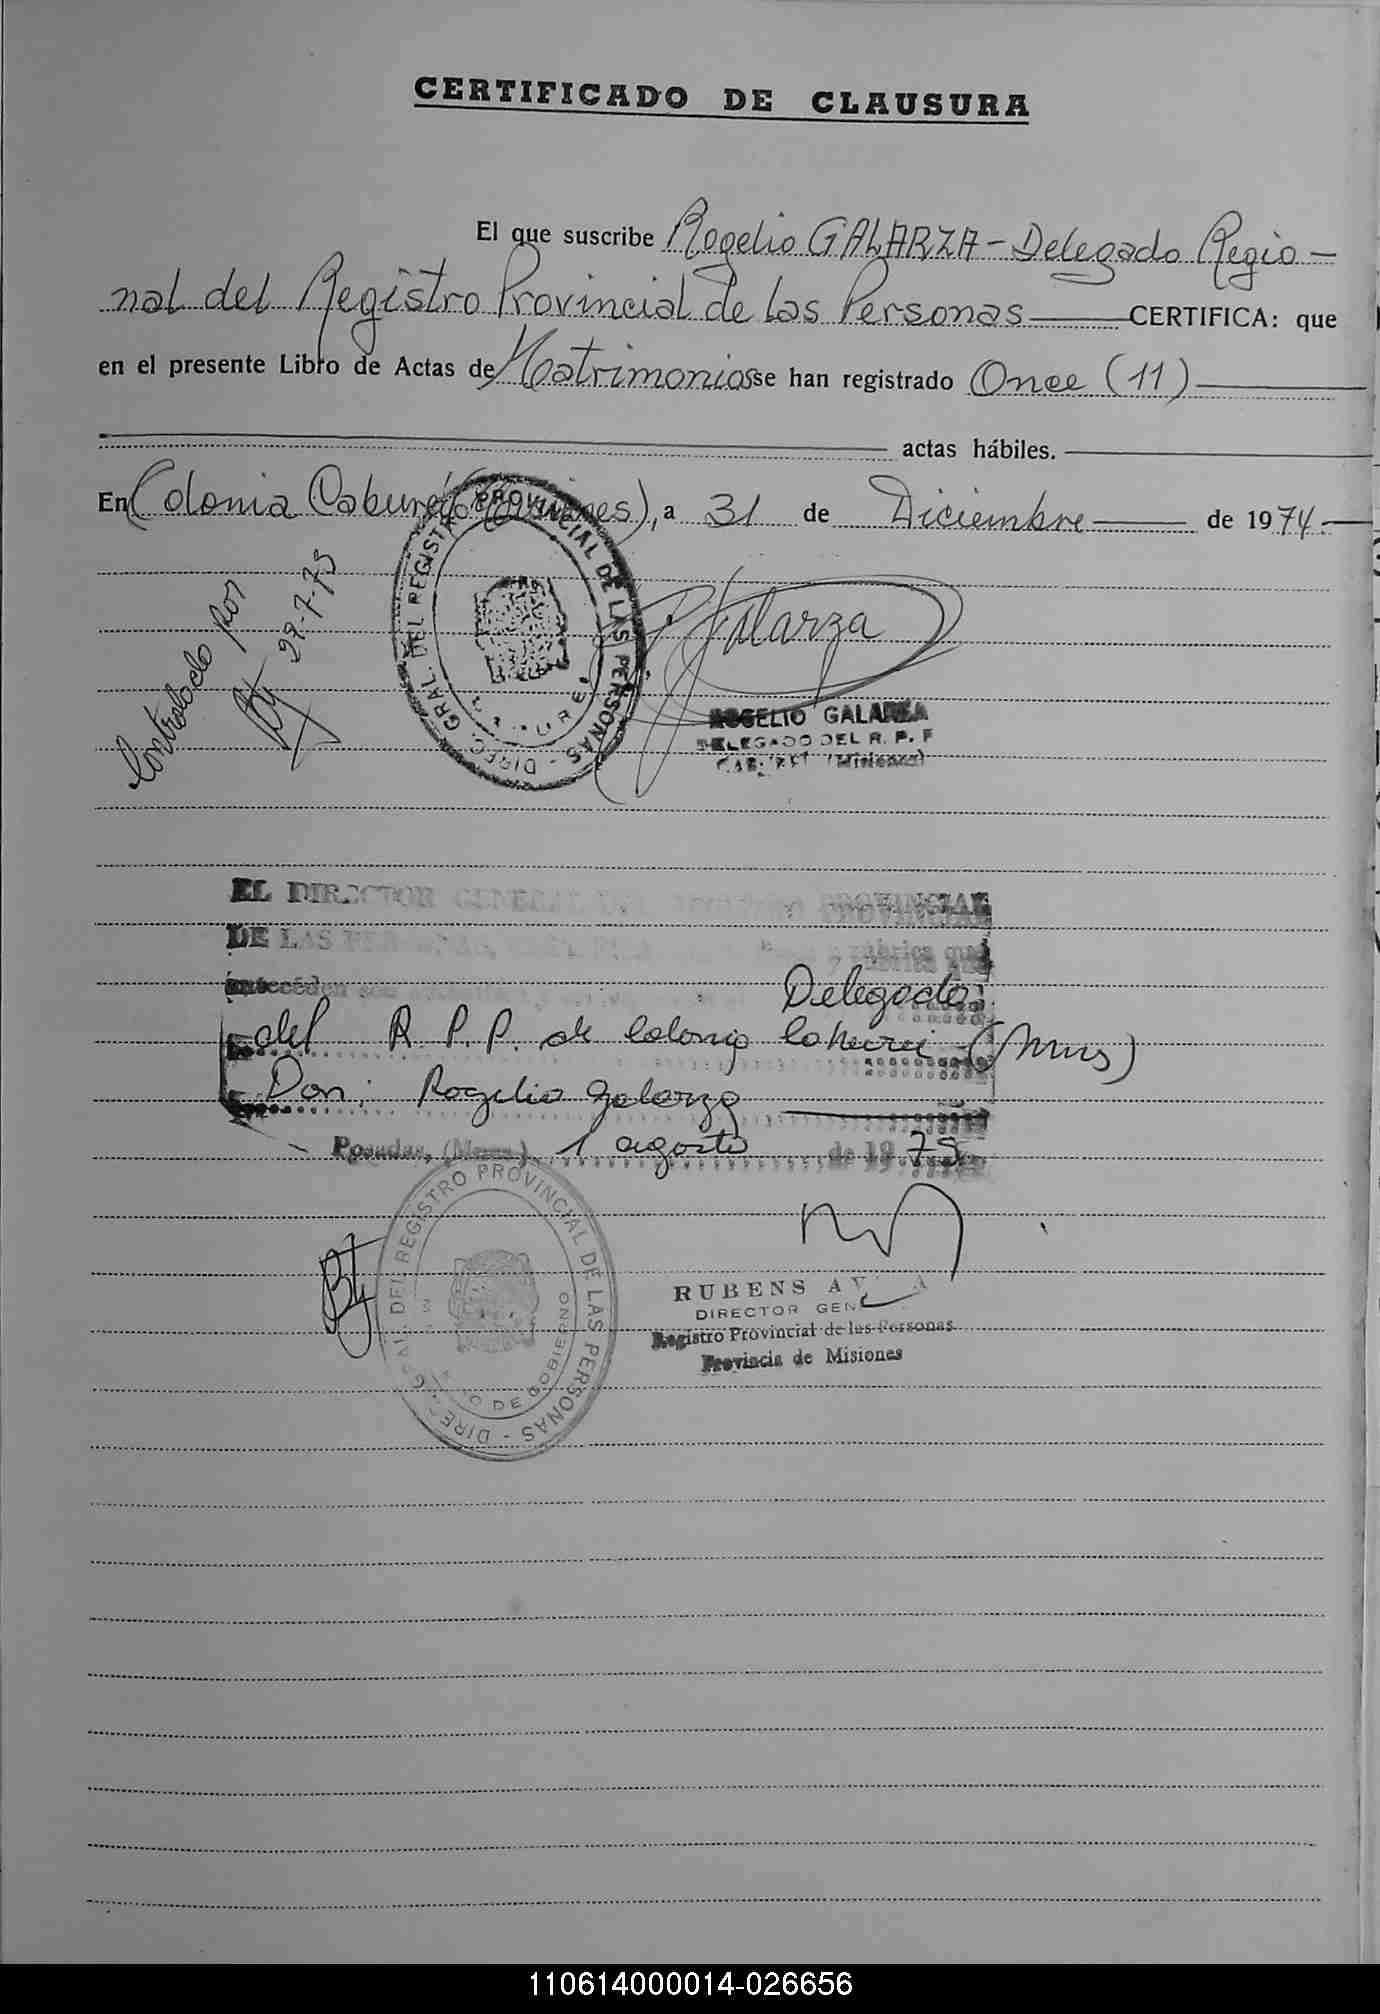 CERTIFICADO DE CLAUSURA
El que suscribe Rogelio GALARZA - Delegado Regio-
nal del Registro Provincial de las Personas CERTIFICA: que
en el presente Libro de Actas de Matrimonios se han registrado Once (11)
actas hábiles.
En Colonia Caburéí (Misiones), a 31 de Diciembre de 1974.-
Controlado por
29-7-75
DIREC. GRAL. DEL REGISTRO PROVINCIAL DE LAS PERSONAS
R. Galarza
ROGELIO GALARZA
DELEGADO DEL R. P. P
CABUREI (Misiones)
EL DIRECTOR GENERAL DEL REGISTRO PROVINCIAL
DE LAS PERSONAS, CERTIFICA que la firma y rúbrica que
anteceden son auténticas Delegado
del R. P. P. de Colonia Caburei - (Mnes)
Don: Rogelio Galarza
Posadas, (Mnes.), 1 agosto de 1975
DIREC. GRAL. DEL REGISTRO PROVINCIAL DE LAS PERSONAS
DE GOBIERNO
RUBENS
DIRECTOR GEN
Registro Provincial de las Personas
Provincia de Misiones
110614000014-026656